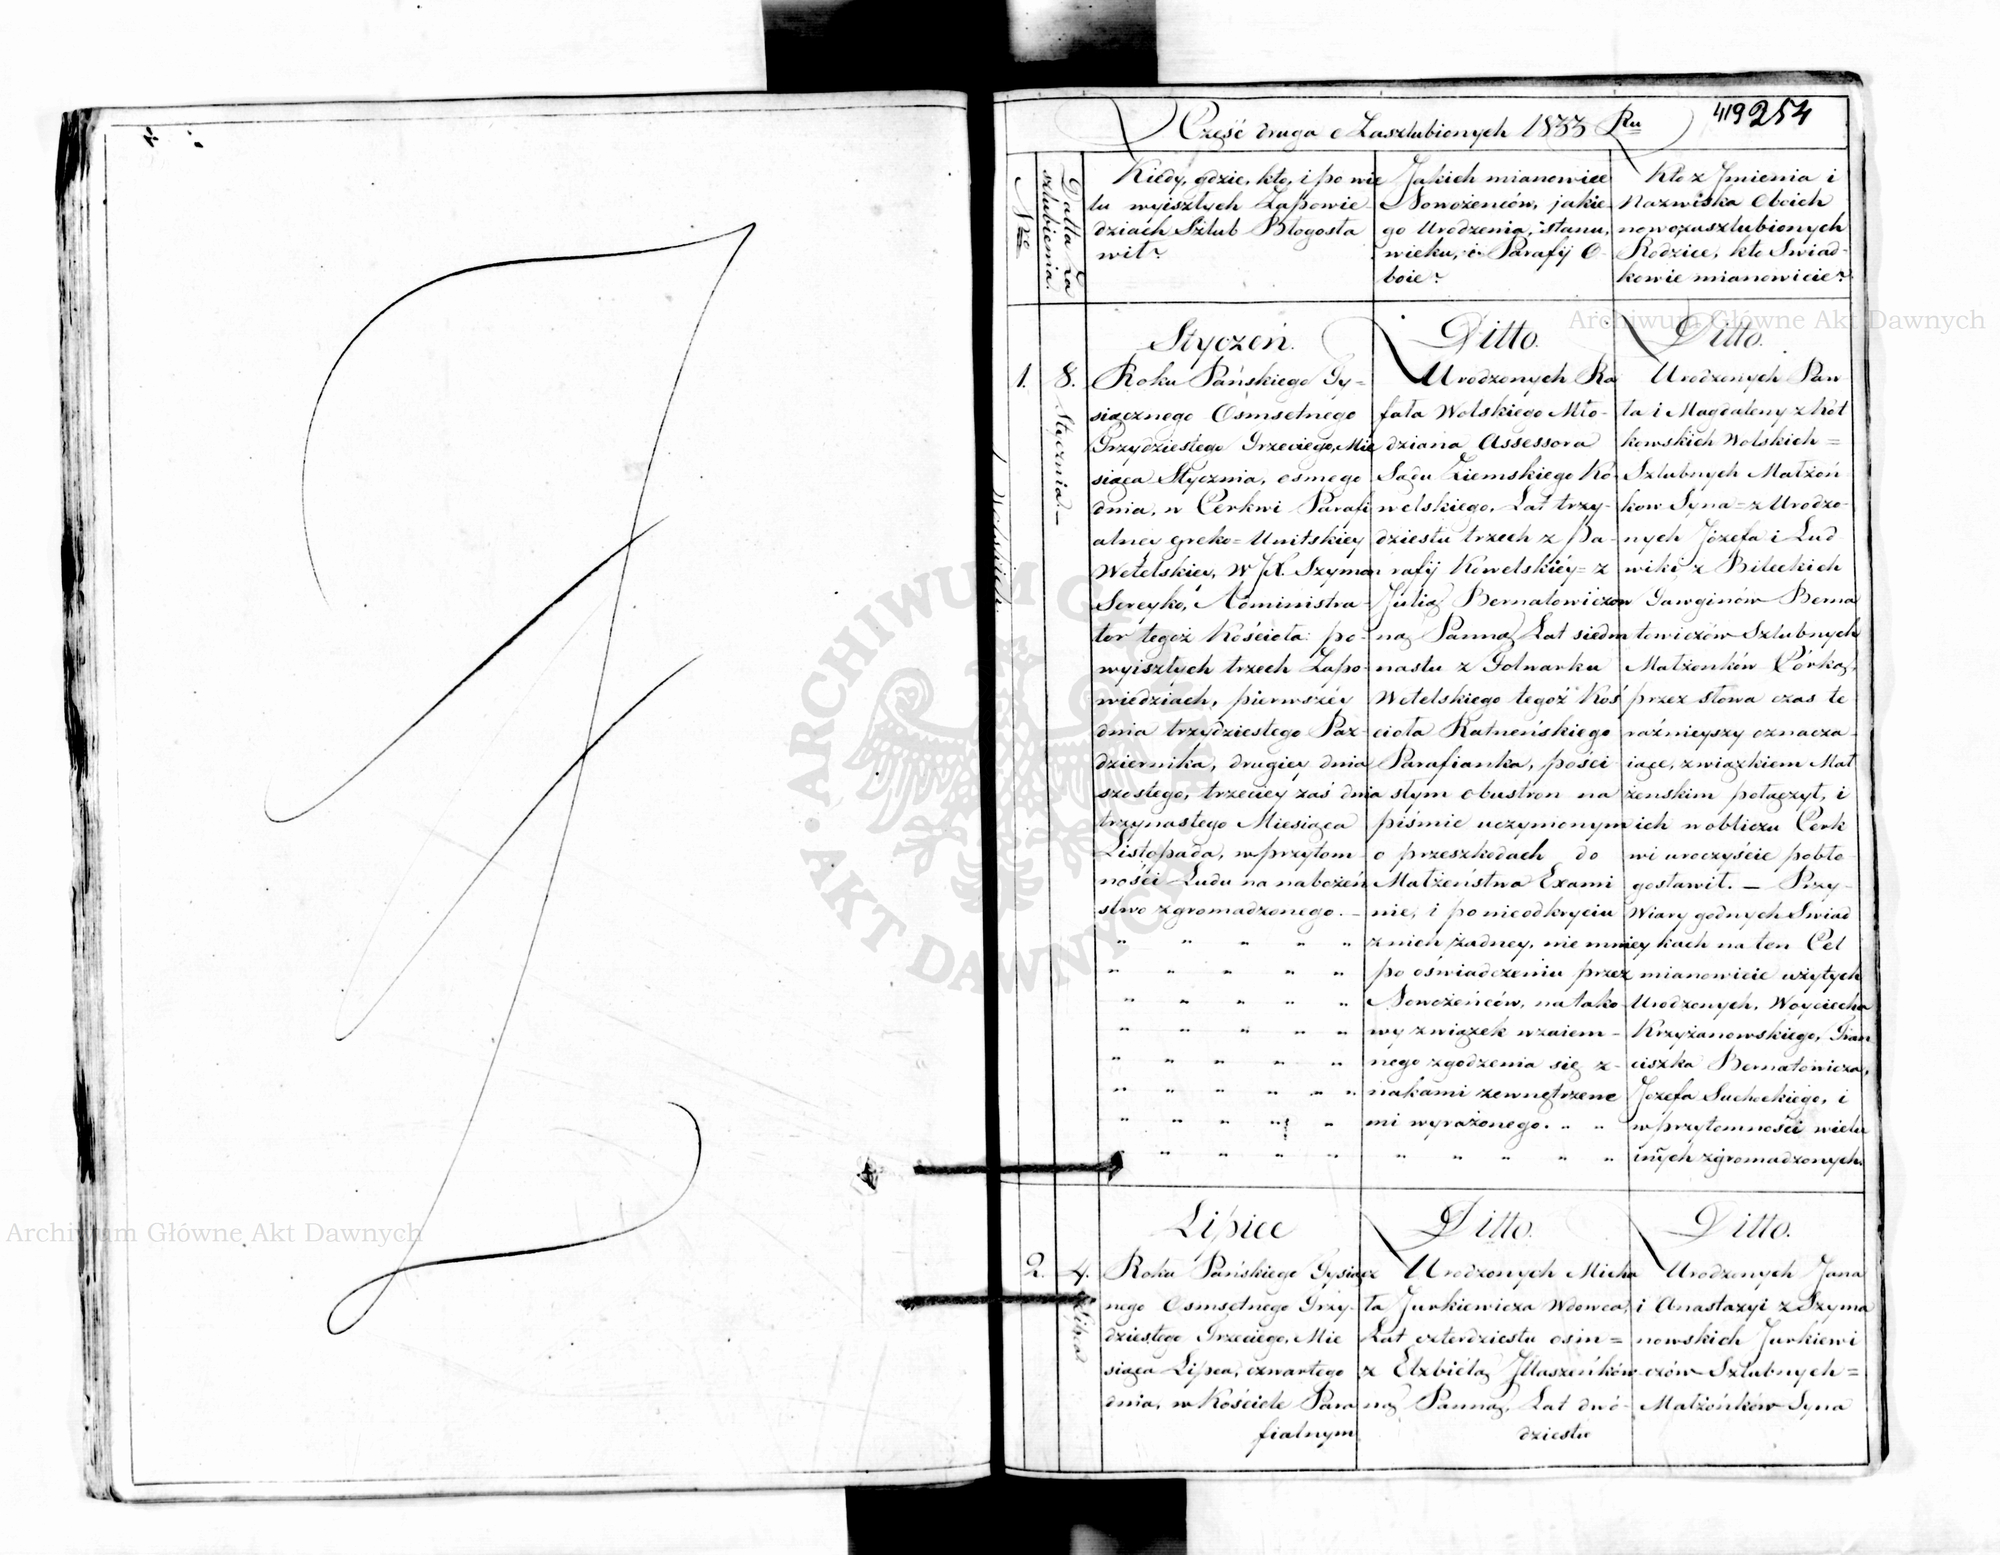 419 254
Część druga o Zaszlubionych 1833 Ru
Nro
Datta Za
szlubienia.
Kiedy, gdzie, kto, i po wie
lu wyiszłych Zapowie-
dziach Szlub Błogosła
wił?
Jakich mianowice
Nowożeńców, jakie-
go Urodzenia, stanu,
wieku, i Parafij O-
boie?
Kto z Jmienia i
Nazwiska Oboich
nowozaszlubionych
Rodzice, kto Swiad-
kowie mianowicie?
Styczeń.
1.
8. Stycznia.
Roku Pańskiego Ty=
siącznego Osmsetnego
Trzydziestego Trzeciego, Mie
siąca Stycznia, osmego
dnia, w Cerkwi Parafi
alney greko=Unitskiey
Wetelskiey, W JX. Szymon
Sereyko, Administra-
tor tegoż Kościoła: po-
wyiszłych trzech Zapo-
wiedziach, pierwszéy
dnia trzydziestego Paz-
dziernika, drugiey dnia
szostego, trzeciey zaś dnia
trzynastego Miesiąca
Listopada, w przytom-
ności Ludu na nabożeń
stwo zgromadzonego. -
Ditto.
Urodzonych Ra
fała Wolskiego Mło-
dziana Assessora
Sądu Ziemskiego Ko-
welskiego, Lat trzy-
dziestu trzech z Pa-
rafij Kowelskiéy= z
Julią Bernatowiczow
ną Panną Lat siedm
nastu z Folwarku
Wetelskiego tegoż Koś
cioła Ratneńskiego
Parafianka, pości
słym obustron na
piśmie uczynionym
o przeszkodach do
Małżeństwa Exami
nie, i po nieodkryciu
z nich żadney, nie mniey
po oświadczeniu przez
Nowożeńców, na tako-
wy związek wzaiem-
nego zgodzenia się z-
nakami zewnętrzne
mi wyrażonego.
Ditto.
Urodzonych Paw
ła i Magdaleny z Kot
kowskich Wolskich=
Szlubnych Małżoń
kow Syna= z Urodzo-
nych Józefa i Lud
wiki z Bileckich
Gawginów Berna
towiczów Szlubnych
Małżonków Córką,
przez słowa czas te
raźnieyszy oznacza-
iące, związkiem Mał
żenskim połączył, i
ich w obliczu Cerk
wi uroczyście pobło-
gosławił. - Przy-
Wiary godnych Swiad
kach na ten Cel
mianowicie użytych
Urodzonych, Woyciecha
Krzyżanowskiego, Fran
ciszka Bernatowicza,
Jozefa Suchockiego, i
w przytomności wielu
innych zgromadzonych.
Lipiec
2.
4. Lipca
Roku Pańskiego Tysiącz
nego Osmsetnego Trzy-
dziestego Trzeciego, Mie
siąca Lipca, czwartego
dnia, w Kościele Para
fialnym
Ditto.
Urodzonych Micha
ła Jurkiewicza Wdowca,
Lat czterdziestu osm=
z Elżbietą Jllaszeńków-
ną Panną, Lat dwó-
dziestu
Ditto.
Urodzonych Jana
i Anastazyi z Szyma
nowskich Jurkiewi
czów Szlubnych=
Małżonków Syna
Archiwum Główne Akt Dawnych
Archiwum Główne Akt Dawnych
ARCHIWUM GŁÓWNE AKT DAWNYCH